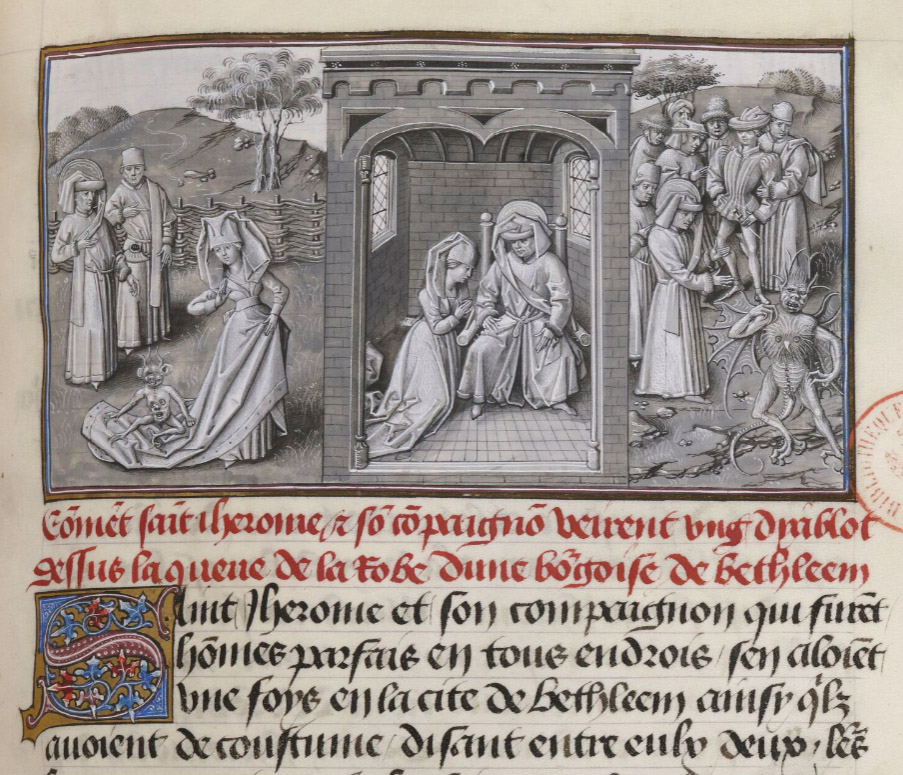 Cōmēt saīt iherome ⁊ sō cōpaignō veirent vng dyablot
dessus la queue de la Robe dune bōrgoise de bethleem
Saint Jherome et son compaignon qui furēt
hōmes parfais en tous endrois sen aloiēt
vne foys en la cite de bethleem ainsy q̄lz
auoient de coustume disant entre eulx deux les
BIBLIOTHEQUE